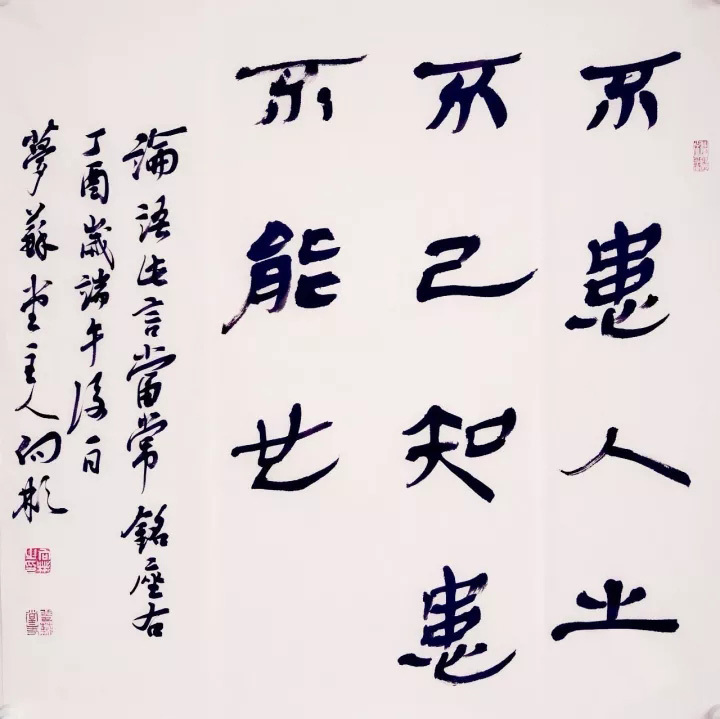 不患人之
不己知患
不能也
論語此言當常銘座右
丁酉歲端午後一日
夢蘇堂主人向彬